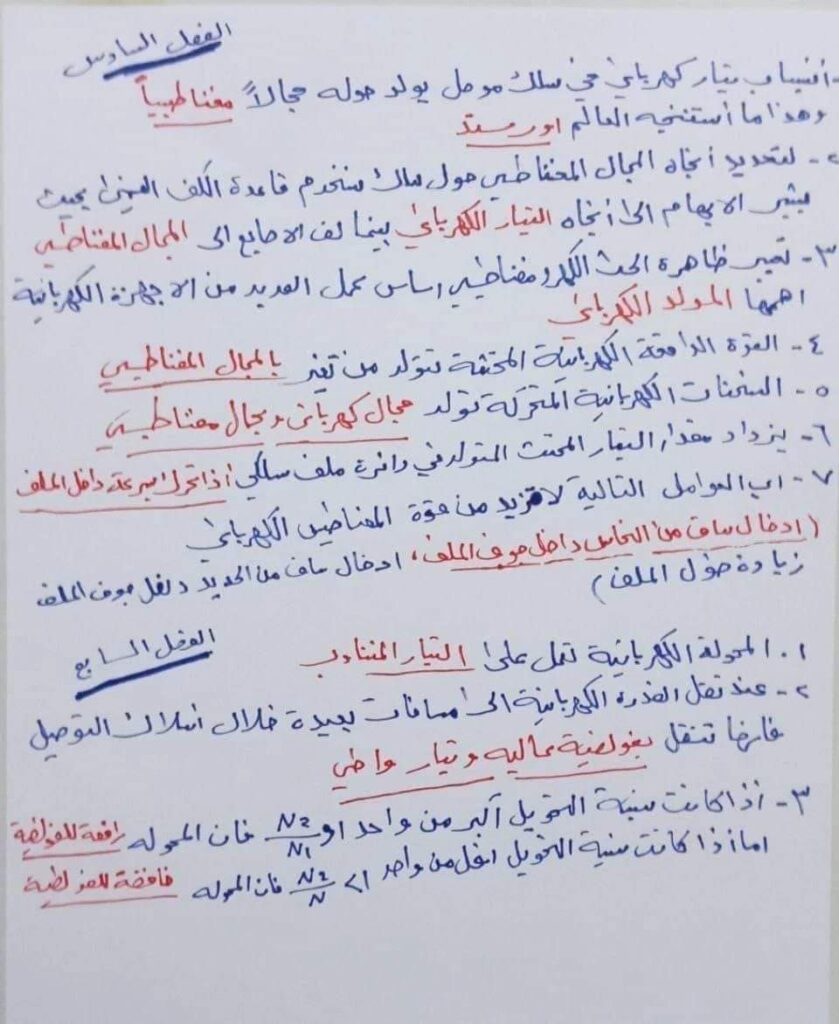 الفصل السادس
- أنسياب تيار كهربائي في سلك موصل يولد حوله مجالاً مغناطيسياً
وهذا ما أستنتجه العالم اورستد
٢- لتحديد أتجاه المجال المغناطيسي حول سلك نستخدم قاعدة الكف اليمنى بحيث
يشير الابهام الى أتجاه التيار الكهربائي بينما لف الاصابع الى المجال المغناطيسي
٣- تعتبر ظاهرة الحث الكهرومغناطيسي اساس عمل العديد من الاجهزة الكهربائية
اهمها المولد الكهربائي
٤- القوة الدافعة الكهربائية المحتثة تتولد من تغير بالمجال المغناطيسي
٥- الشحنات الكهربائية المتحركة تولد مجال كهربائي ومجال مغناطيسي
٦- يزداد مقدار التيار المحتث المتولد في دائرة ملف سلكي اذا تحرك بسرعة داخل الملف
٧- اي العوامل التالية لا تزيد من قوة المغناطيس الكهربائي
(ادخال ساق من النحاس داخل جوف الملف، ادخال ساق من الحديد داخل جوف الملف
زيادة طول الملف)
الفصل السابع
١. المحولة الكهربائية تعمل على التيار المتناوب
٢- عند نقل القدرة الكهربائية الى مسافات بعيدة خلال اسلاك التوصيل
فأنها تنقل بفولطية عالية وتيار واطئ
٣- أذا كانت نسبة التحويل أكبر من واحد او N2/N1 فان المحوله رافعة للفولطية
اما أذا كانت نسبة التحويل اقل من واحد 1> N2/N فان المحوله خافضة للفولطية